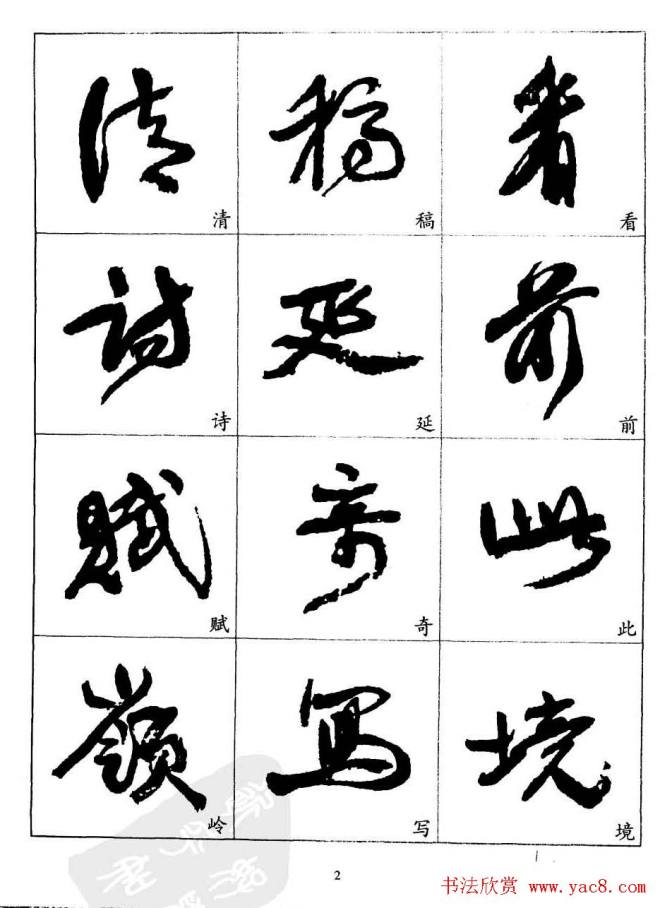 清 稿 看
清 稿 看
詩 延 前
诗 延 前
賦 奇 此
赋 奇 此
嶺 寫 境
岭 写 境
2
书法欣赏 www.yac8.com